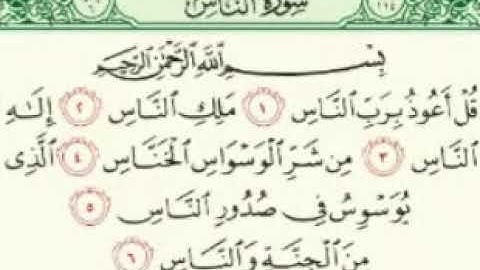 سُورَةُ النَّاسِ ١١٤
بِسْمِ اللَّهِ الرَّحْمَٰنِ الرَّحِيمِ
قُلْ أَعُوذُ بِرَبِّ النَّاسِ ١ مَلِكِ النَّاسِ ٢ إِلَٰهِ
النَّاسِ ٣ مِن شَرِّ الْوَسْوَاسِ الْخَنَّاسِ ٤ الَّذِي
يُوَسْوِسُ فِي صُدُورِ النَّاسِ ٥
مِنَ الْجِنَّةِ وَالنَّاسِ ٦